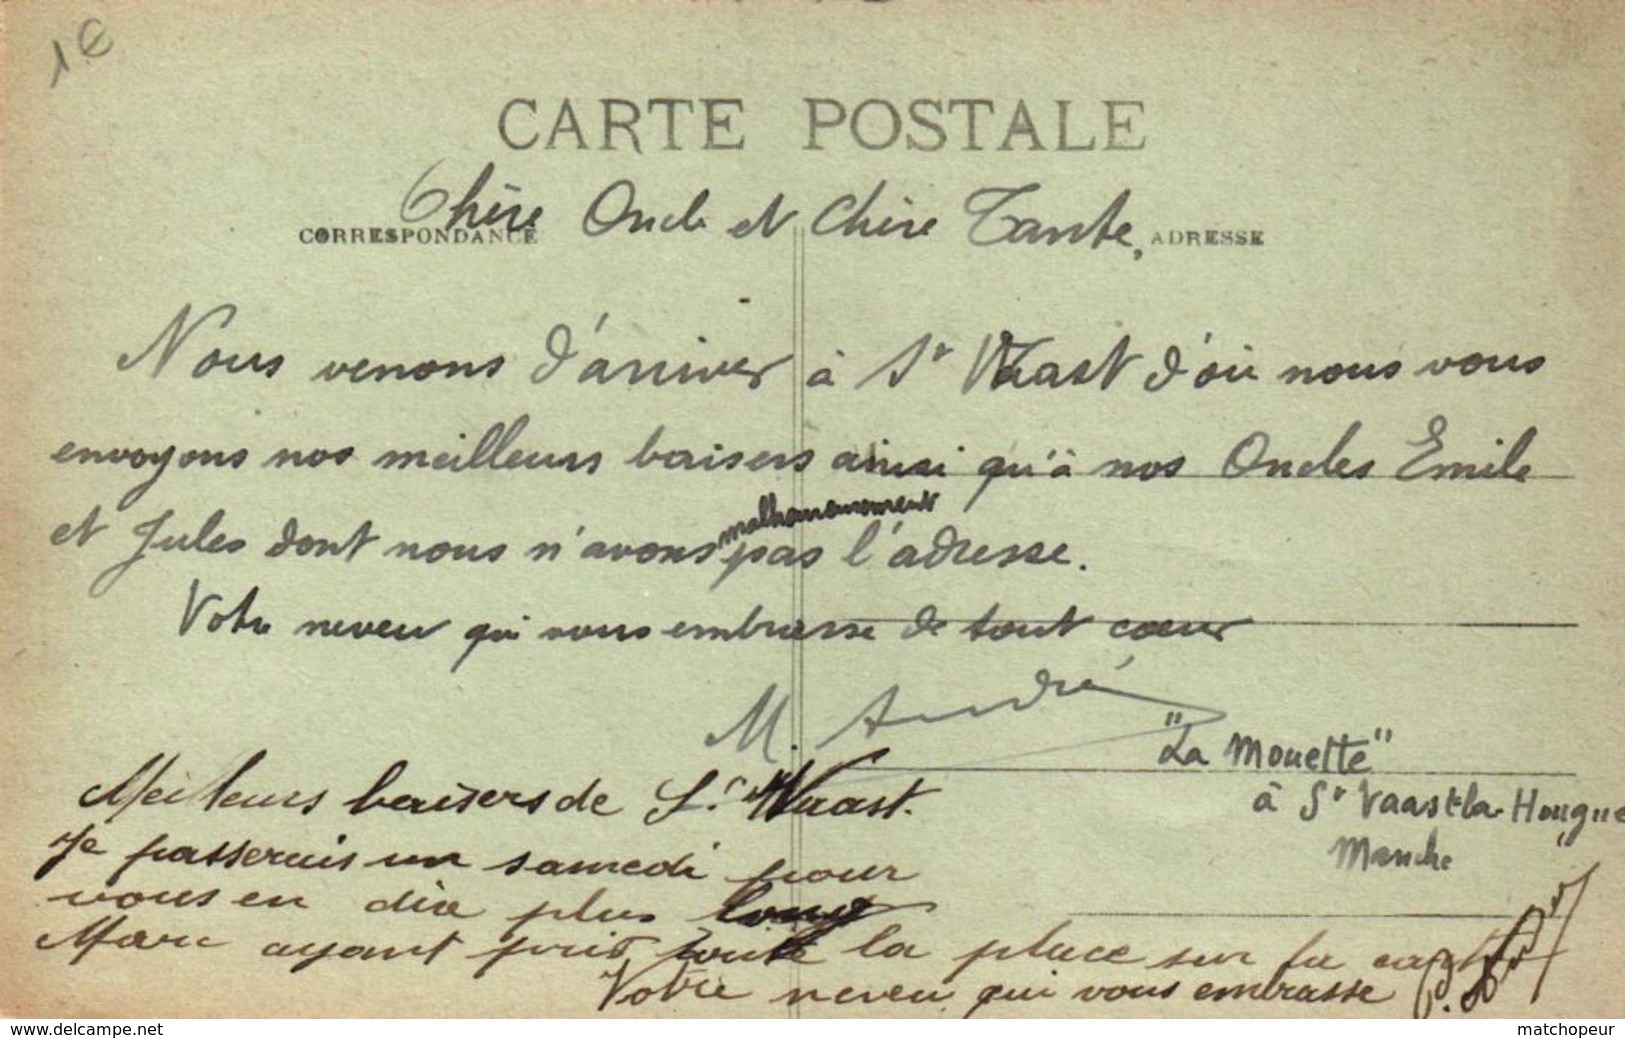 1€
CARTE POSTALE
Chère Oncle et Chère Tante,
CORRESPONDANCE
ADRESSE
Nous venons d'arriver à St Vaast d'où nous vous
envoyons nos meilleurs baisers ainsi qu'à nos Oncles Emile
malheureusement
et Jules dont nous n'avons pas l'adresse.
Votre neveu qui vous embrasse de tout cœur
M. André
"La Mouette"
à St Vaast-la-Hougue
Manche
Meilleurs baisers de St Vaast.
Je passerais un samedi pour
vous en dire plus long
Marc ayant pris toute la place sur la carte
Votre neveu qui vous embrasse
www.delcampe.net
matchopeur